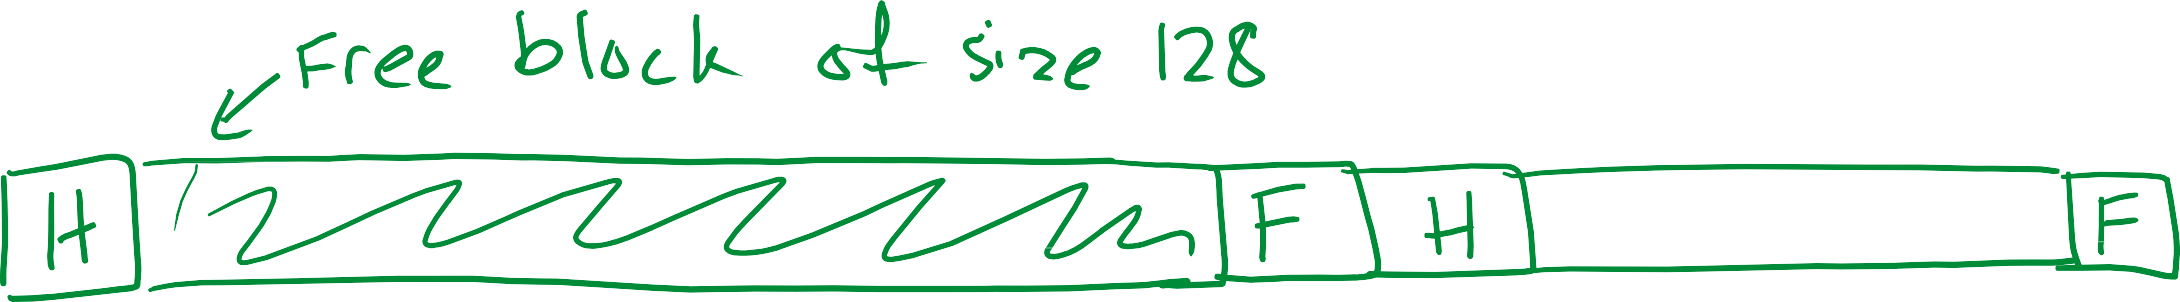 Free block of size 128
H F H F